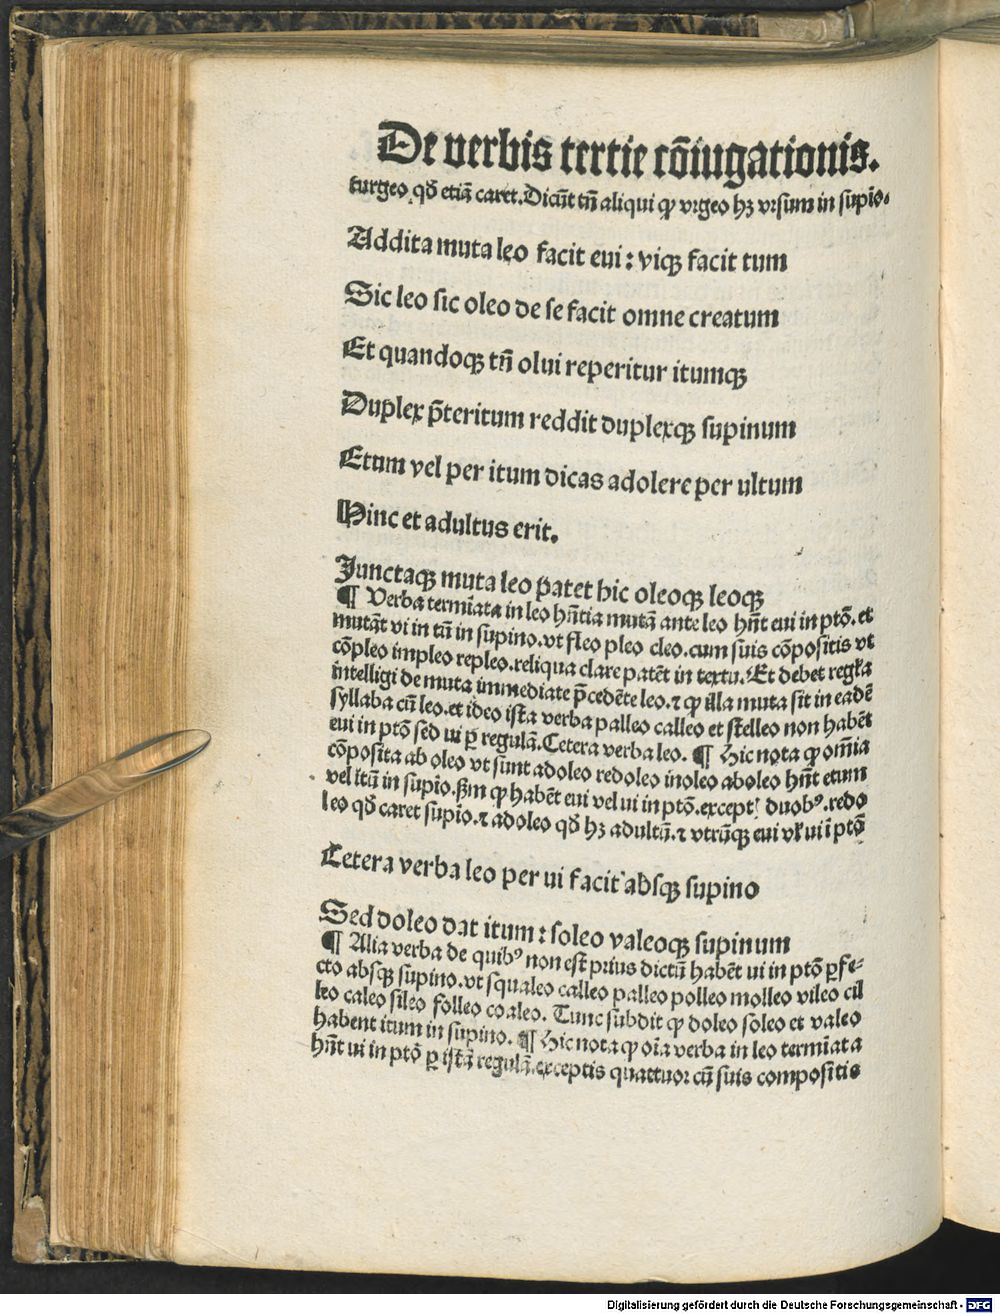 De verbis tertie cōiugationis.
turgeo. qđ etiā caret. Dicūt tñ aliqui ꝙ vrgeo hꝫ vrsum in supīo.
Addita muta leo facit eui : viqꝫ facit tum
Sic leo sic oleo de se facit omne creatum
Et quandoqꝫ tñ olui reperitur itumqꝫ
Duplex p̄teritum reddit duplexqꝫ supinum
Etum vel per itum dicas adolere per ultum
Hinc et adultus erit.
Junctaqꝫ muta leo patet hic oleoqꝫ leoqꝫ
¶ Verba termīata in leo hn̄tia mutā ante leo hn̄t eui in ptō. et
mutāt vi in tū in supino. vt fleo pleo cleo. cum suis cōpositis vt
cōpleo impleo repleo. reliqua clare patēt in textu. Et debet regl'a
intelligi de muta immediate p̄cedēte leo. ⁊ ꝙ illa muta sit in eadē
syllaba cū leo. et ideo ista verba palleo calleo et stelleo non habēt
eui in ptō sed ui ꝑ regulā. Cetera verba leo. ¶ Hic nota ꝙ om̄ia
cōposita ab oleo vt sunt adoleo redoleo inoleo aboleo hn̄t etum
vel itū in supīo. ẜm ꝙ habēt eui vel ui in ptō. except! duobꝰ. redo
leo qđ caret supīo. ⁊ adoleo qđ hꝫ adultū. ⁊ vtrūqꝫ eui vl' ui ī ptō
Cetera verba leo per ui facit absqꝫ supino
Sed doleo dat itum : soleo valeoqꝫ supinum
¶ Alia verba de quibꝰ non est prius dictū habēt ui in ptō ꝑfe⸗
cto absqꝫ supino. vt squaleo calleo palleo polleo molleo vileo cil
leo caleo sileo folleo coaleo. Tunc subdit ꝙ doleo soleo et valeo
habent itum in supino. ¶ Hic nota ꝙ oīa verba in leo termīata
hn̄t ui in ptō ꝑ istā regulā. exceptis quattuor cū suis compositis
Digitalisierung gefördert durch die Deutsche Forschungsgemeinschaft - DFG